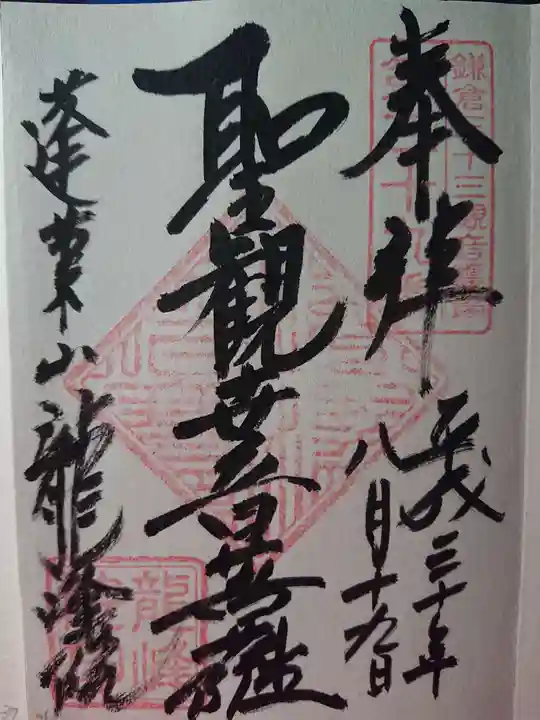 鎌倉三十三観音霊場
奉拝
平成三十年
八月十九日
聖観世音菩薩
蓬莱山龍峰院